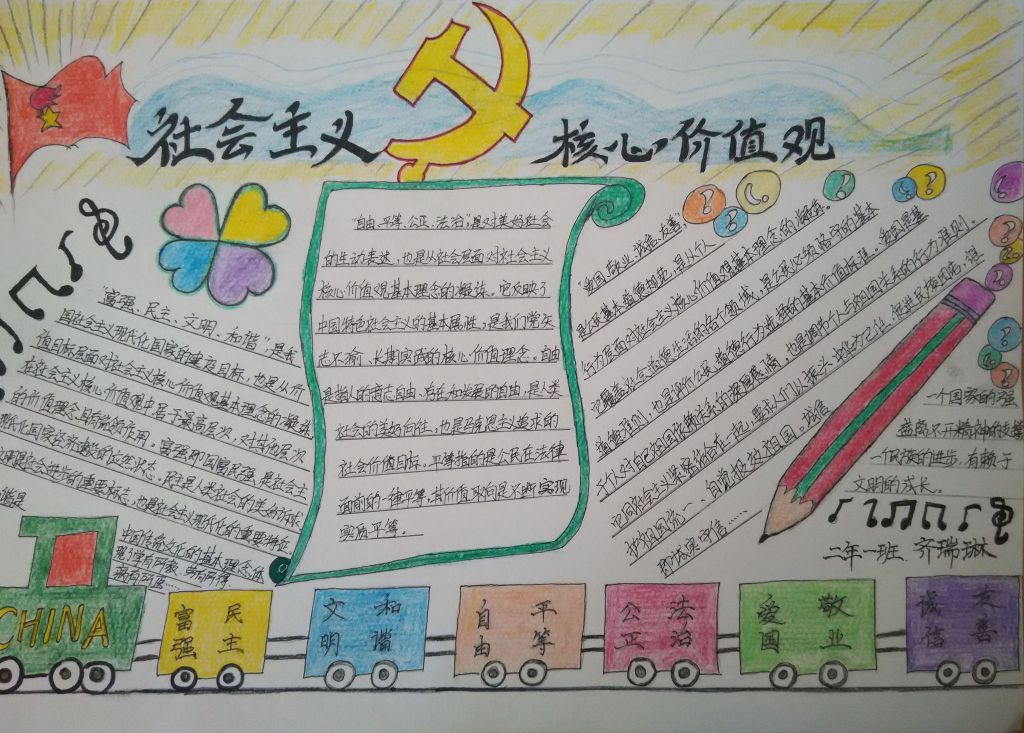 社会主义 核心价值观
"富强、民主、文明、和谐"是我
国社会主义现代化国家的建设目标，也是从价
值目标层面对社会主义核心价值观基本理念的凝练
在社会主义核心价值观中居于最高层次，对其他层次
的价值理念具有统领作用。富强即国富民强，是社会主
现代化国家经济建设的应然状态，民主是人类社会的美好诉求
文明是社会进步的重要标志，也是社会主义现代化的重要特征
谐是
中国传统文化的基本理念，体
现了学有所教、劳有所得、
"自由、平等、公正、法治"是对美好社会
的生动表达，也是从社会层面对社会主义
核心价值观基本理念的凝练。它反映了
中国特色社会主义的基本属性，是我们党矢
志不渝、长期实践的核心价值理念。自由
是指人的意志自由、存在和发展的自由，是人类
社会的美好向往，也是马克思主义追求的
社会价值目标。平等指的是公民在法律
面前的一律平等，其价值取向是不断实现
实质平等。
"爱国、敬业、诚信、友善"
是公民基本道德规范，是从个人
行为层面对社会主义核心价值观基本理念的凝练。
它覆盖社会道德生活的各个领域，是公民必须恪守的基本
道德准则，也是评价公民道德行为选择的基本价值标准。爱国是基
于个人对自己祖国依赖关系的深厚情感，也是调节个人与祖国关系的行为准则。
它同社会主义紧密结合在一起，要求人们以振兴中华为己任，促进民族团结、维
护祖国统一、自觉报效祖国。诚信
即诚实守信……
一个国家的强
盛离不开精神的支撑
一个民族的进步，有赖于
文明的成长。
二年一班 齐瑞琳
CHINA
富强 民主
文明 和谐
自由 平等
公正 法治
爱国 敬业
诚信 友善